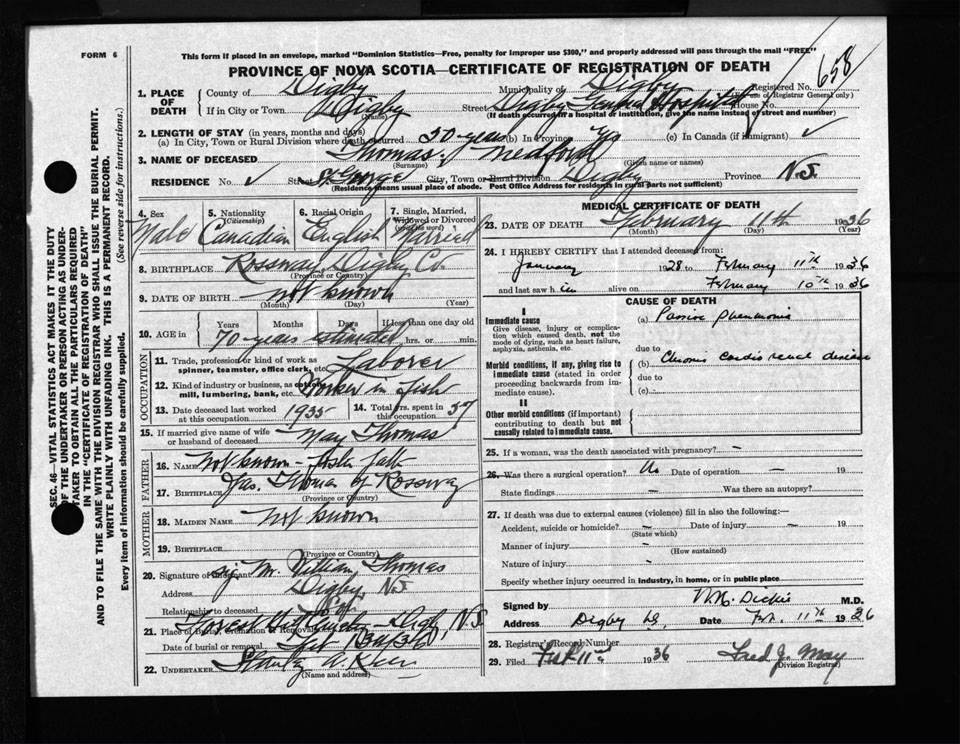 FORM 6
This form if placed in an envelope, marked "Dominion Statistics—Free, penalty for improper use $300," and properly addressed will pass through the mail "FREE"
PROVINCE OF NOVA SCOTIA—CERTIFICATE OF REGISTRATION OF DEATH
Registered No. 658
(For use of Registrar General only)
1. PLACE OF DEATH
County of Digby Municipality of Digby
If in City or Town Digby Street Digby General Hospital House No.
(Name) (If death occurred in a hospital or institution, give the name instead of street and number)
2. LENGTH OF STAY (in years, months and days)
(a) In City, Town or Rural Division where death occurred 50 years (b) In Province (c) In Canada (if immigrant) ✓
3. NAME OF DECEASED Thomas, Medford
(Surname) (Given name or names)
RESIDENCE No. ✓ Street St George City, Town or Rural Division Digby Province N.S.
(Residence means usual place of abode. Post Office Address for residents in rural parts not sufficient)
4. Sex Male
5. Nationality (Citizenship) Canadian
6. Racial Origin English
7. Single, Married, Widowed or Divorced (write the word) Married
8. BIRTHPLACE Rossway Digby Co.
(Province or Country)
9. DATE OF BIRTH not known
(Month) (Day) (Year)
10. AGE in Years Months Days If less than one day
70 years estimated hrs. or min.
OCCUPATION
11. Trade, profession or kind of work as spinner, teamster, office clerk, etc. Laborer
12. Kind of industry or business, as cotton mill, lumbering, bank, etc. Worker in fish
13. Date deceased last worked at this occupation 1935
14. Total yrs. spent in this occupation 57
15. If married give name of wife or husband of deceased May Thomas
FATHER
16. NAME Not known - foster
Jas. Thomas of Rossway
17. BIRTHPLACE
(Province or Country)
MOTHER
18. MAIDEN NAME Not known
19. BIRTHPLACE
(Province or Country)
20. Signature of informant sig Mr. William Thomas
Address Digby, N.S.
Relationship to deceased
21. Place of Burial, Cremation or Removal Forest Hill Digby, N.S.
Date of burial or removal Feb 13/36
22. UNDERTAKER Stanley A.
(Name and address)
MEDICAL CERTIFICATE OF DEATH
23. DATE OF DEATH February 11th 1936
(Month) (Day) (Year)
24. I HEREBY CERTIFY that I attended deceased from:
January 1928 to February 11th 1936
and last saw him alive on February 10th 1936
CAUSE OF DEATH
I
Immediate cause
Give disease, injury or complication which caused death, not the mode of dying, such as heart failure, asphyxia, asthenia, etc.
(a) Passive Pneumonia
due to
Morbid conditions, if any, giving rise to immediate cause (stated in order proceeding backwards from immediate cause).
(b) Chronic cardio renal disease
due to
(c)
II
Other morbid conditions (if important) contributing to death but not causally related to immediate cause.
25. If a woman, was the death associated with pregnancy? –
26. Was there a surgical operation? No Date of operation – 19
State findings – Was there an autopsy?
27. If death was due to external causes (violence) fill in also the following:—
Accident, suicide or homicide? – Date of injury – 19
(State which)
Manner of injury –
(How sustained)
Nature of injury –
Specify whether injury occurred in industry, in home, or in public place
Signed by Dickie M.D.
Address Digby NS. Date Feb. 11th 1936
28. Registrar's Record Number
29. Filed Feb 11th 1936 Fred J. May
(Division Registrar)
SEC. 46—VITAL STATISTICS ACT MAKES IT THE DUTY OF THE UNDERTAKER OR PERSON ACTING AS UNDERTAKER TO OBTAIN ALL THE PARTICULARS REQUIRED IN THE "CERTIFICATE OF REGISTRATION OF DEATH"
AND TO FILE THE SAME WITH THE DIVISION REGISTRAR WHO SHALL ISSUE THE BURIAL PERMIT.
WRITE PLAINLY WITH UNFADING INK. THIS IS A PERMANENT RECORD.
Every item of information should be carefully supplied. (See reverse side for instructions.)